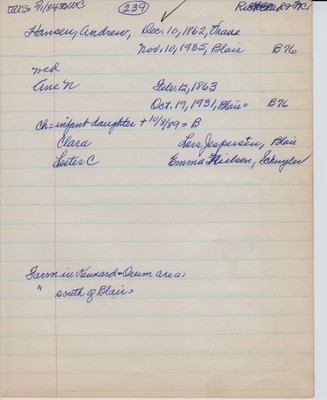 239
Hansen, Andrew, Dec. 10, 1862, Thase
Nov. 10, 1935, Blair B76
med
Ane N Feb. 12, 1863
Oct. 19, 1931, Blair= B76
Ch= infant daughter + 10/8/89 = B
Clara Lars Jespersen, Blair
Lester C Emma Nielsen, Schuyler
Farm in Kennard-Orum area=
" south of Blair=